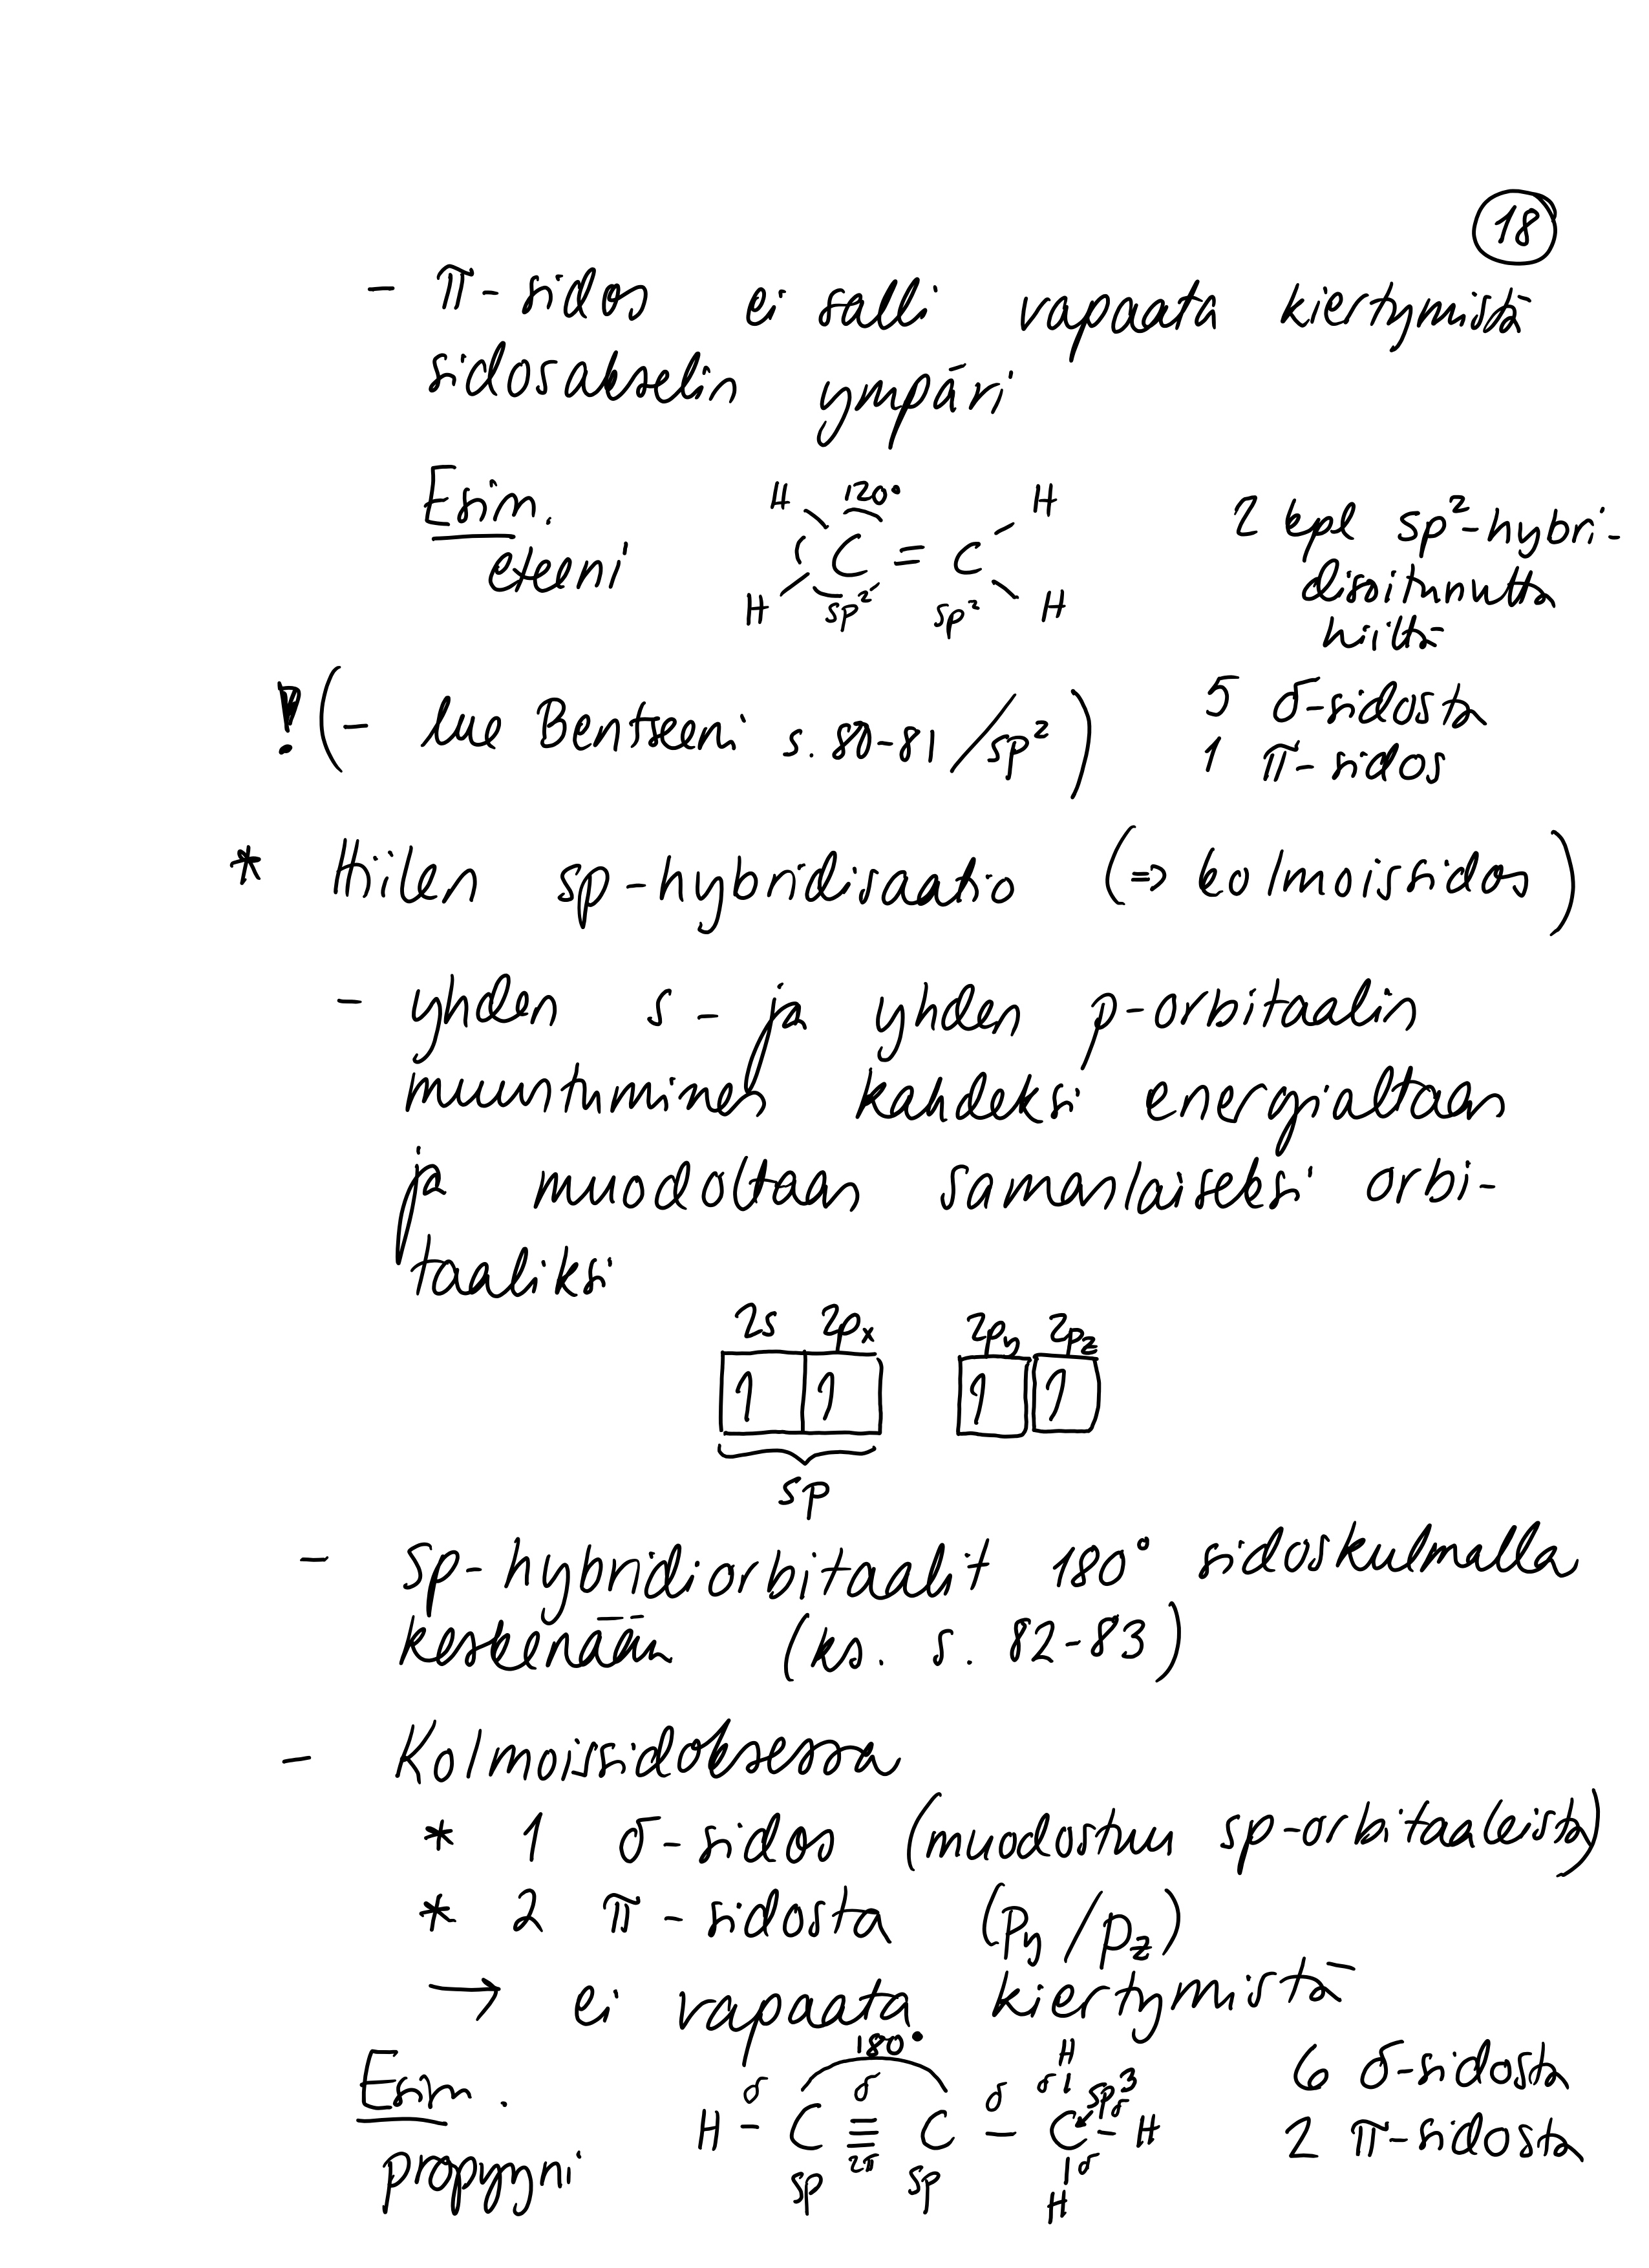 18
- π-sidos ei salli vapaata kiertymistä
sidosakselin ympäri
Esim.
eteeni
H 120° H
C = C
H sp² sp² H
2 kpl sp²-hybri-
disoitunutta
hiiltä
! (- lue Bentseeni s. 80-81 / sp²)
5 σ-sidosta
1 π-sidos
* Hiilen sp-hybridisaatio (⇒ kolmoissidos)
- yhden s- ja yhden p-orbitaalin
muuntuminen kahdeksi energialtaan
ja muodoltaan samanlaiseksi orbi-
taaliksi
2s 2px 2py 2pz
1 1 1 1
sp
- sp-hybridiorbitaalit 180° sidoskulmalla
keskenään (ks. s. 82-83)
- Kolmoissidoksessa
* 1 σ-sidos (muodostuu sp-orbitaaleista)
* 2 π-sidosta (py/pz)
→ ei vapaata kiertymistä
Esim.
propyyni
180° H
σ σ σ σ sp3 σ
H - C ≡ C - C - H
2π σ
sp sp H
6 σ-sidosta
2 π-sidosta